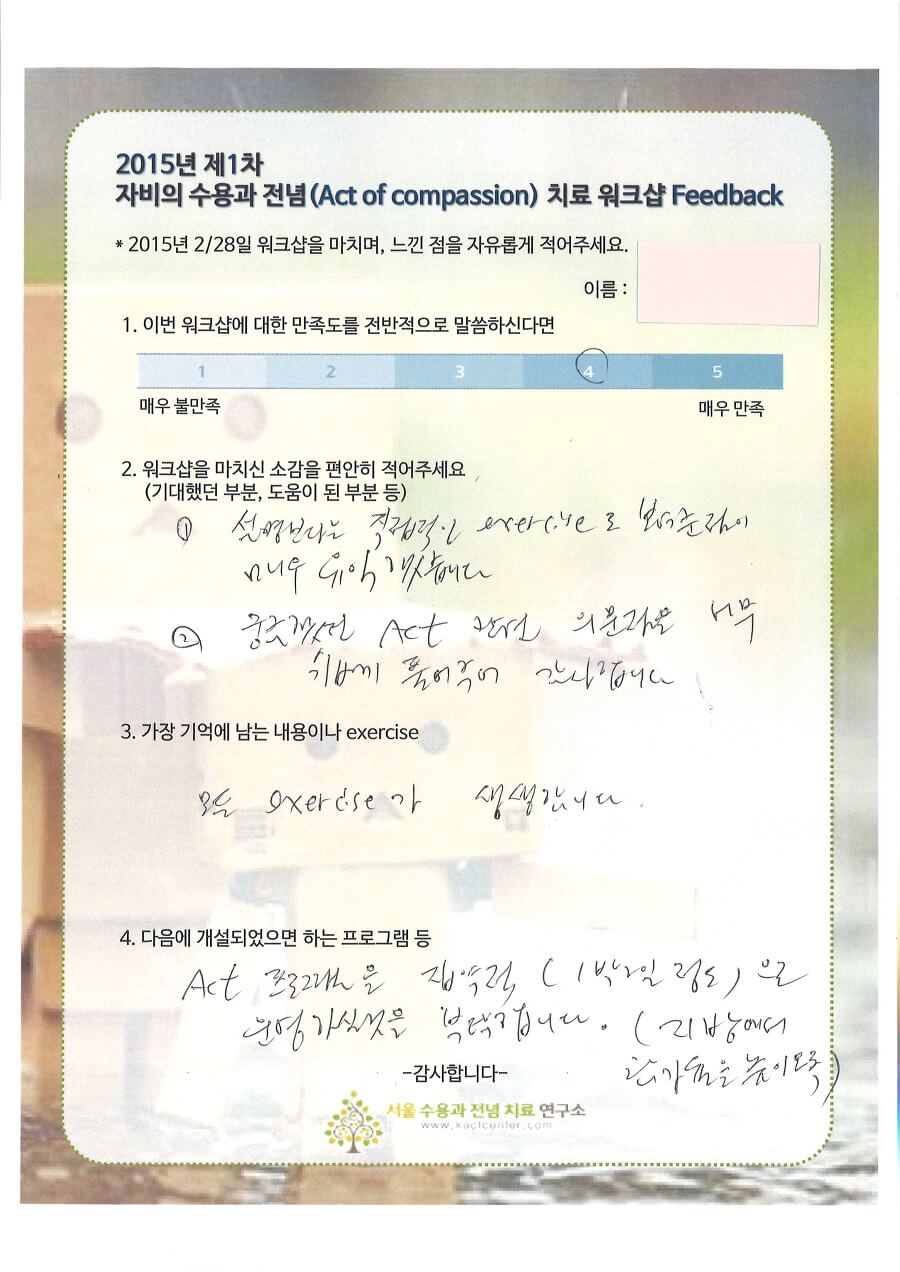 2015년 제1차
자비의 수용과 전념(Act of compassion) 치료 워크샵 Feedback
* 2015년 2/28일 워크샵을 마치며, 느낀 점을 자유롭게 적어주세요.
이름 :
1. 이번 워크샵에 대한 만족도를 전반적으로 말씀하신다면
1 2 3 4 5
매우 불만족 매우 만족
2. 워크샵을 마치신 소감을 편안히 적어주세요
(기대했던 부분, 도움이 된 부분 등)
① 설명보다는 직접적인 exercise로 보여준점이
매우 유익했습니다
② 궁금했던 Act 관련 의문점을 너무
쉽게 풀어주어 감사합니다
3. 가장 기억에 남는 내용이나 exercise
모든 exercise가 생생합니다.
4. 다음에 개설되었으면 하는 프로그램 등
Act 프로그램을 집약적 (1박2일 정도)으로
운영하실것을 부탁합니다. (지방에서
참가율을 높이도록)
-감사합니다-
서울 수용과 전념 치료 연구소
www.kactcenter.com